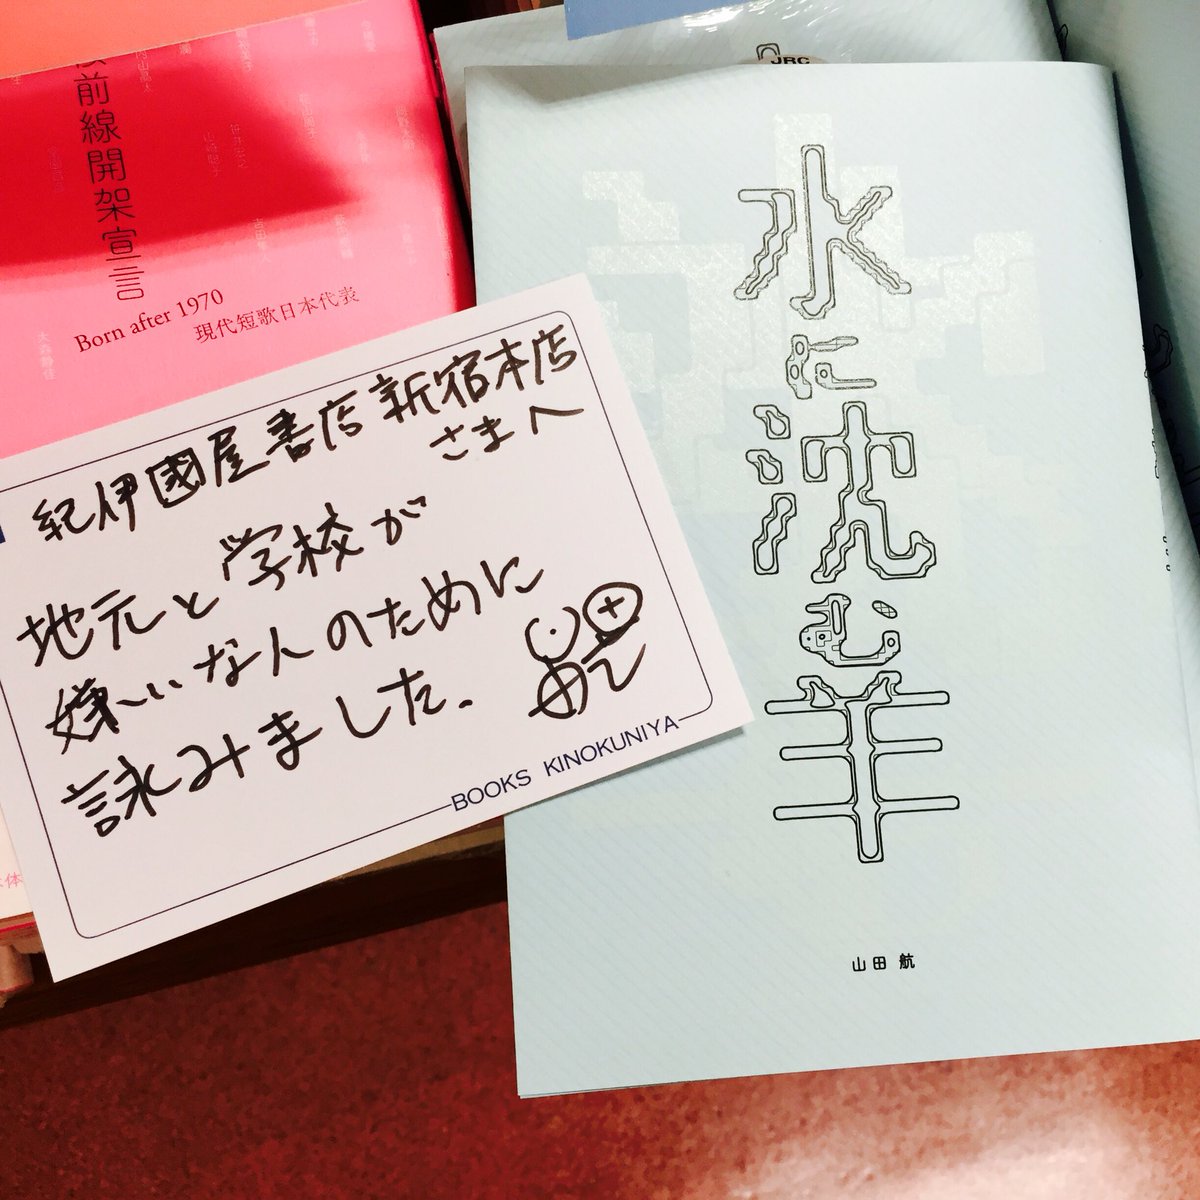 前線開架宣言
Born after 1970
現代短歌日本代表
紀伊國屋書店新宿本店
さまへ
地元と学校が
嫌いな人のために
詠みました.
BOOKS KINOKUNIYA
JRC
水に沈む羊
山田 航